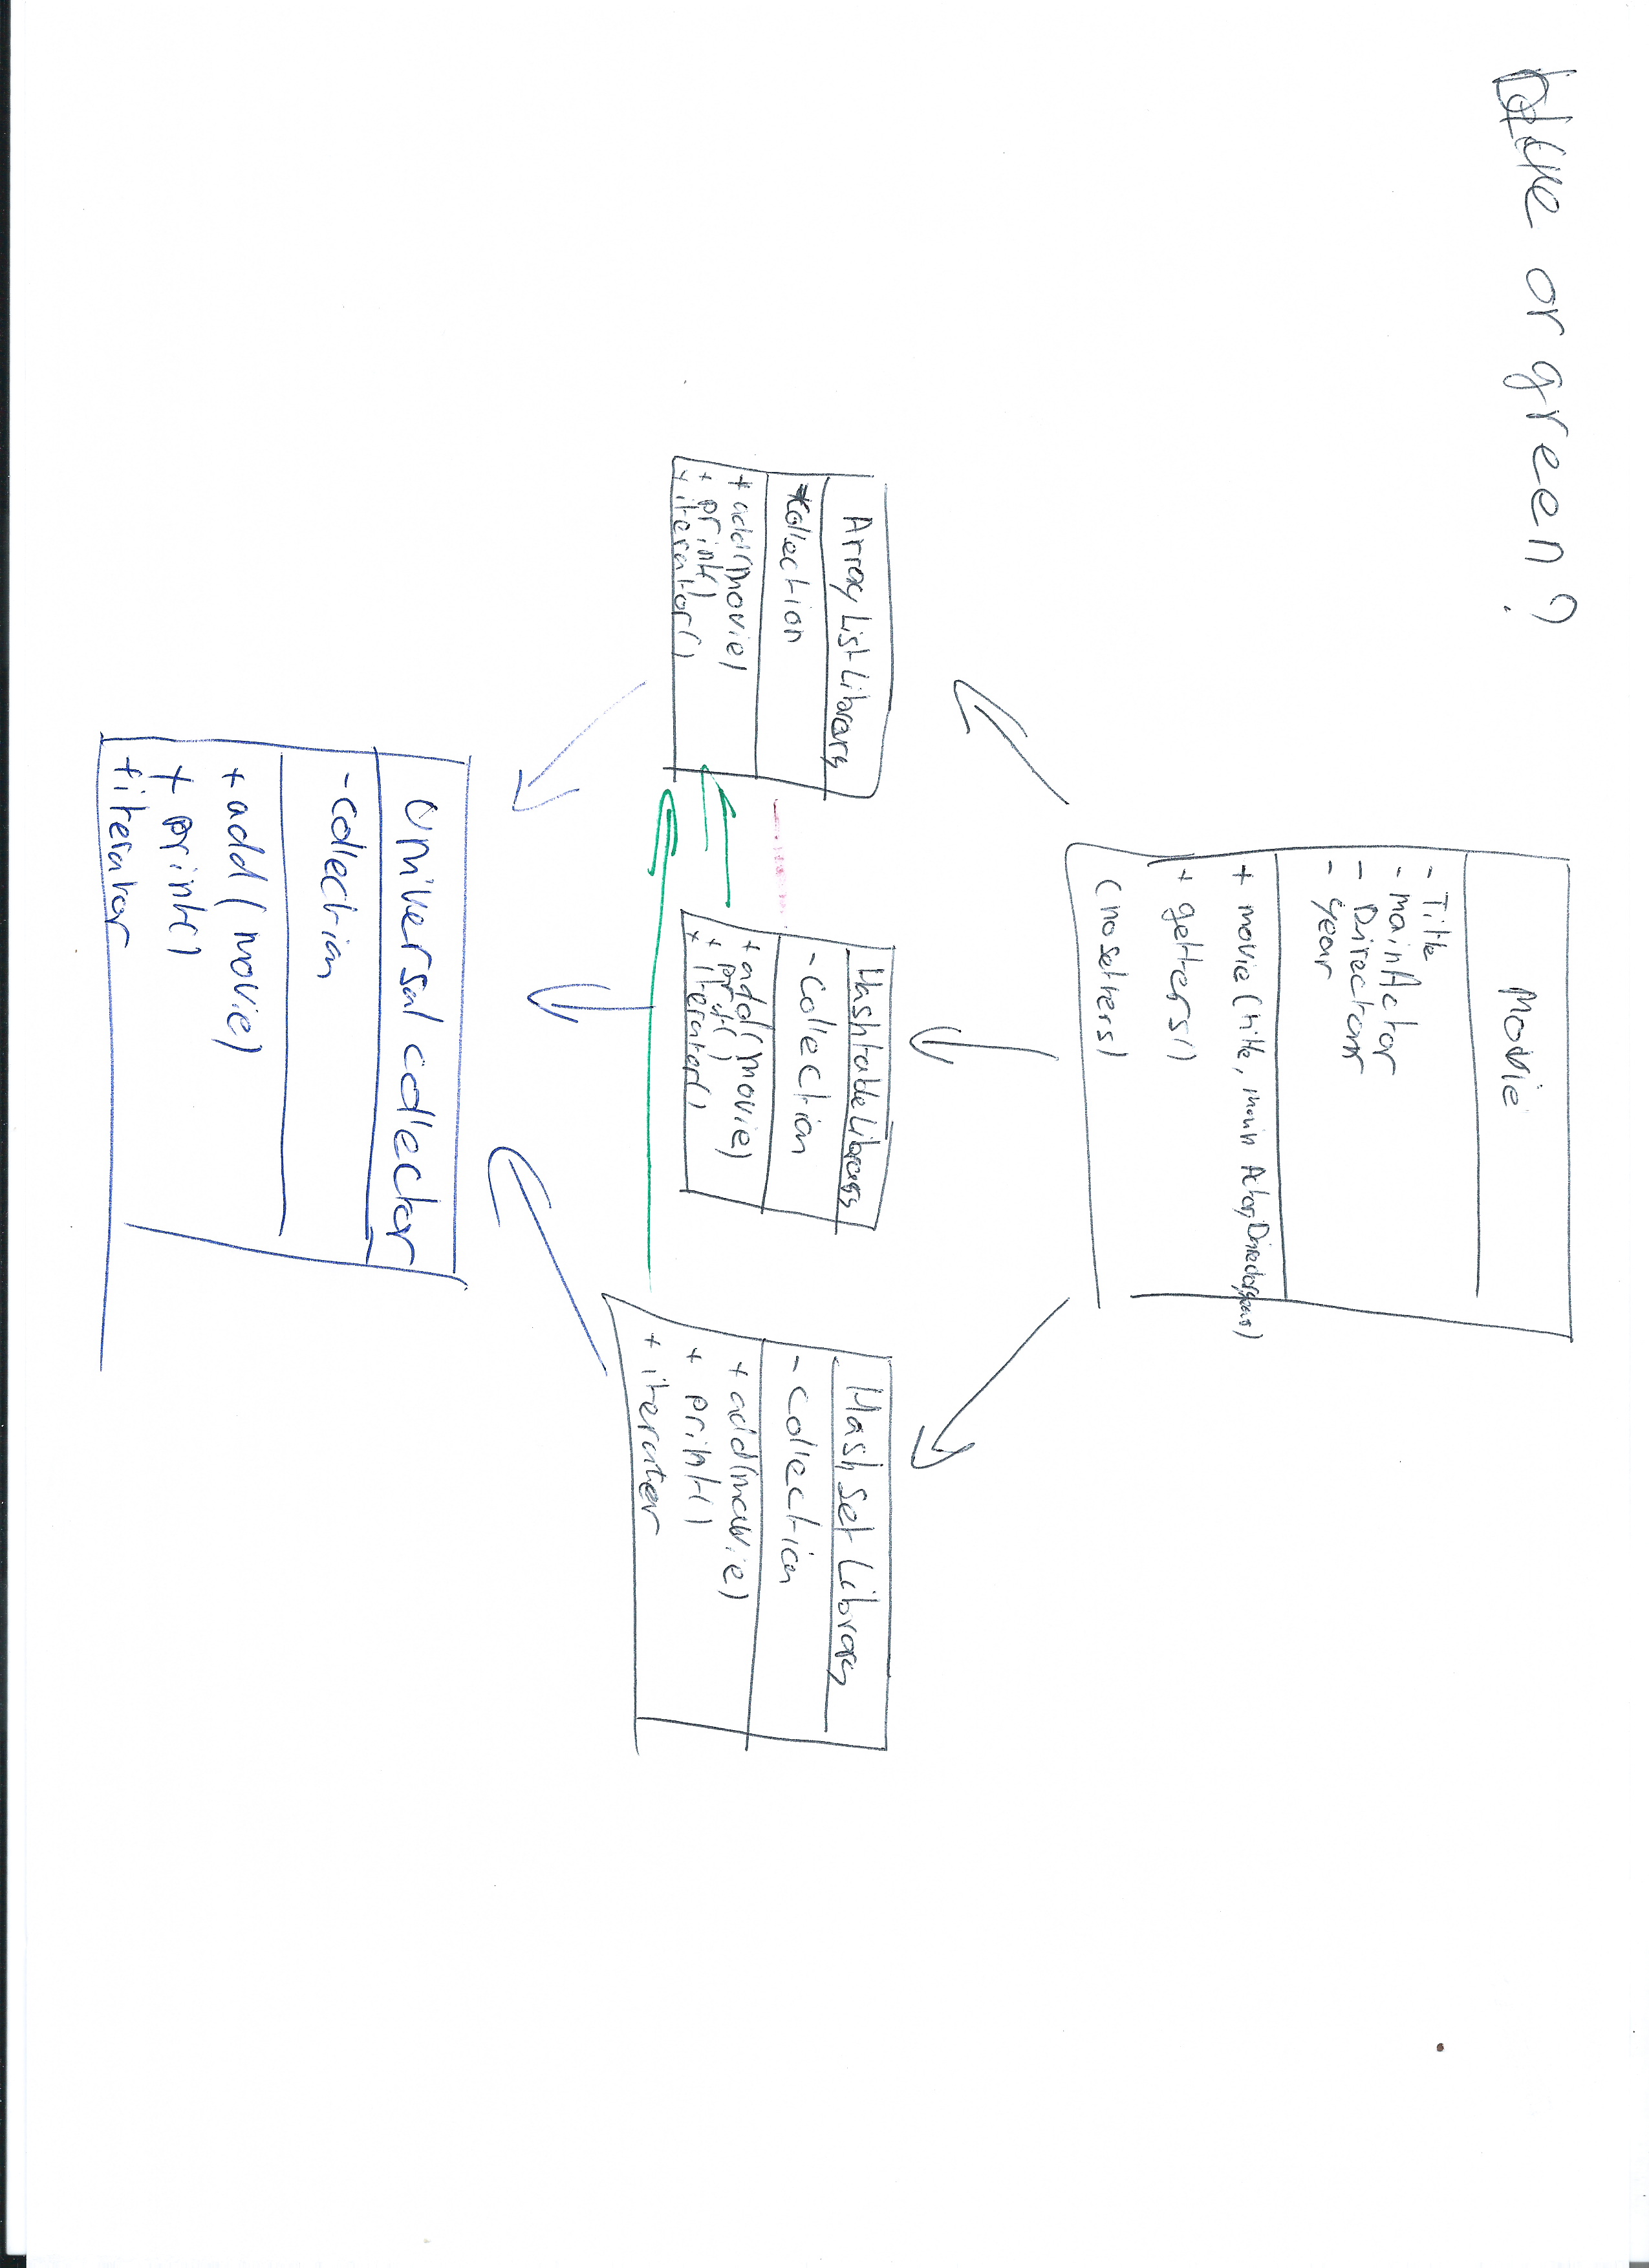 blue or green?
Movie
- Title
- mainActor
- Director
- year
+ movie (title, main Actor, Director, year)
+ getters()
(no setters)
ArrayListLibrary
-collection
+ add(movie)
+ print()
+ iterator()
HashtableLibrary
- collection
+ add(movie)
+ print()
+ iterator()
HashSet Library
- collection
+ add(movie)
+ print()
+ iterator
Universal collector
- collection
+ add (movie)
+ print()
+ iterator